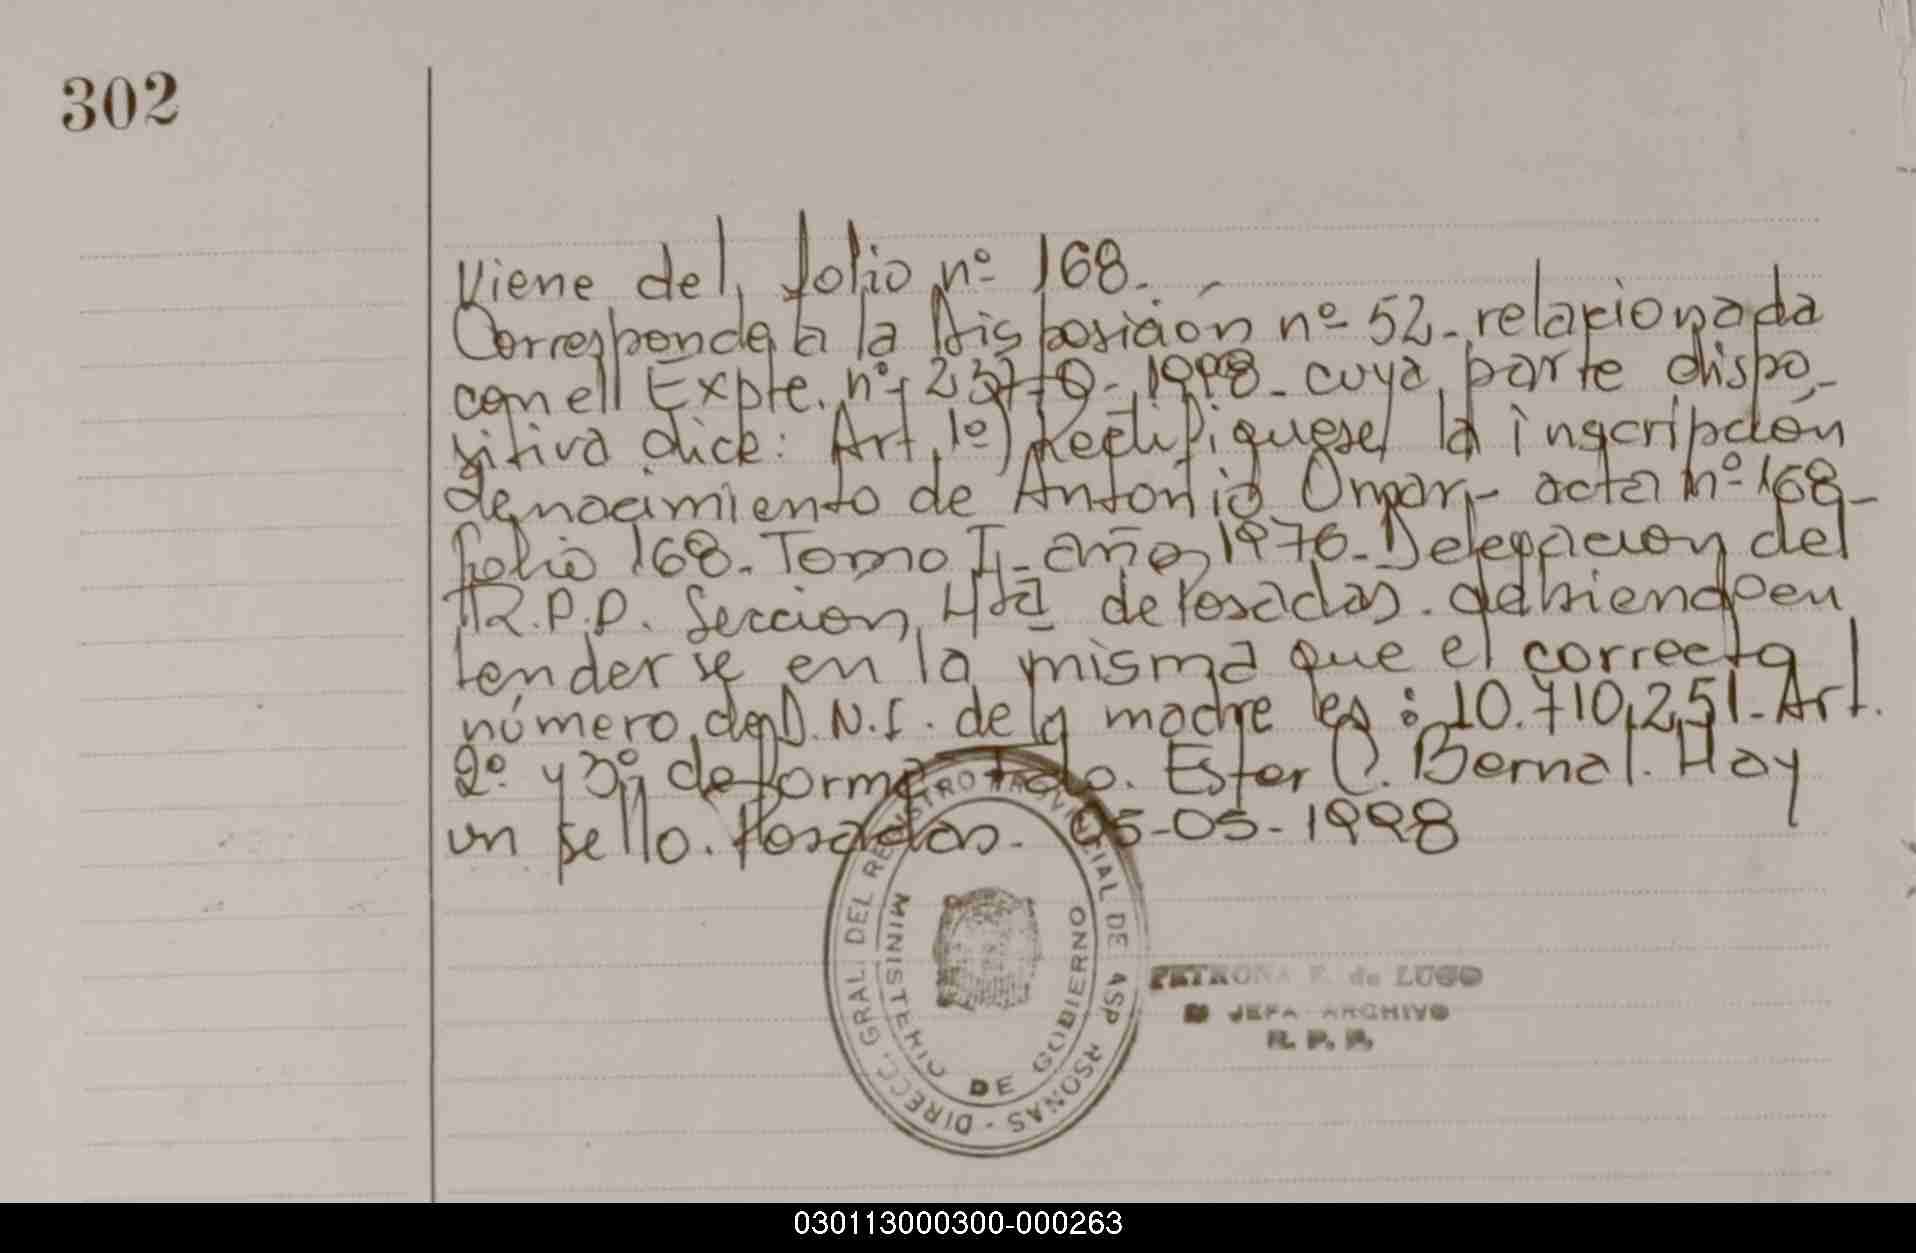 302
Viene del folio nº 168.
Corresponde a la Disposición nº 52 - relacionada
con el Expte. nº 1998 - cuya parte dispo-
sitiva dice: Art. 1º) Rectifíquese la inscripción
de nacimiento de Antonio Omar, - acta nº 168 -
folio 168. Tomo I - año 1976 - Delegacion del
R.P.P. Seccion 4ta de Posadas. debiendo en
tenderse en la misma que el correcto
número de D.N.I. de la madre es: 10.710.251 - Art.
2º y 3º de forma Fdo. Ester C. Bernal. Hay
un sello. Posadas. 05-05-1998
DIRECC. GRAL. DEL REGISTRO PROVINCIAL DE AS P RSONAS -
MINISTERIO DE GOBIERNO
PETRONA de LUGO
JEFA ARCHIVO
R. P. P.
030113000300-000263